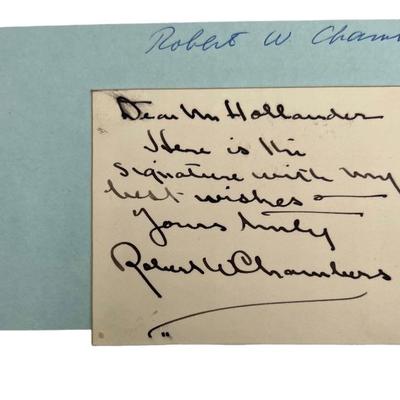 Robert W Cham
Dear Mr Hollander
Here is the
signature with my
best wishes
Yours truly
Robert W Chambers